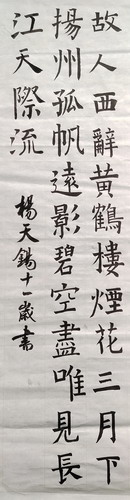 故人西辭黃鶴樓煙花三月下
揚州孤帆遠影碧空盡唯見長
江天際流
楊天錫十一歲書